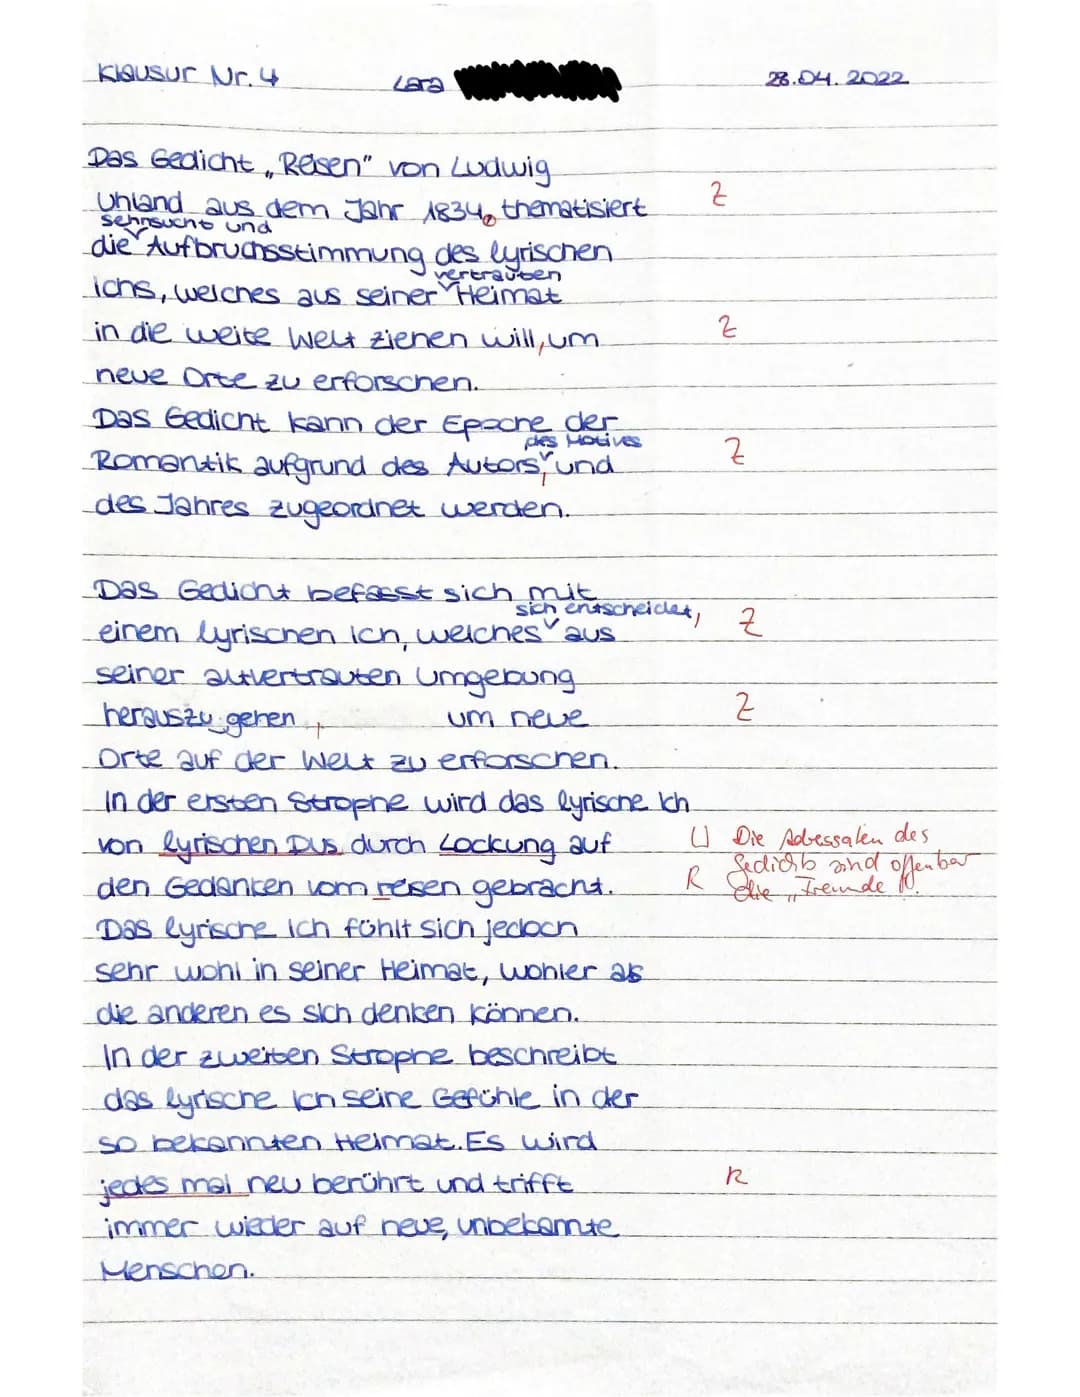 Klausur Nr. 4 Lara 28.04.2022
Das Gedicht „Reisen" von Ludwig
Uhland aus dem Jahr 1834, thematisiert Z
sehnsucht und
die Aufbruchsstimmung des lyrischen
vertrauten
Ichs, welches aus seiner Heimat
in die weite Welt ziehen will, um Z
neue Orte zu erforschen.
Das Gedicht kann der Epoche der
des Motives
Romantik aufgrund des Autors, und Z
des Jahres zugeordnet werden.
Das Gedicht befasst sich mit
sich entscheidet,
einem lyrischen Ich, welches aus Z
seiner altvertrauten Umgebung
herauszugehen, um neue Z
Orte auf der Welt zu erforschen.
In der ersten Strophe wird das lyrische Ich
von lyrischen Dus durch Lockung auf Die Adressaten des
den Gedanken vom reisen gebracht. R Gedichts sind offenbar
die „Freunde".
Das lyrische Ich fühlt sich jedoch
sehr wohl in seiner Heimat, wohler als
die anderen es sich denken können.
In der zweiten Strophe beschreibt
das lyrische Ich seine Gefühle in der
so bekannten Heimat. Es wird
jedes mal neu berührt und trifft R
immer wieder auf neue, unbekannte
Menschen.